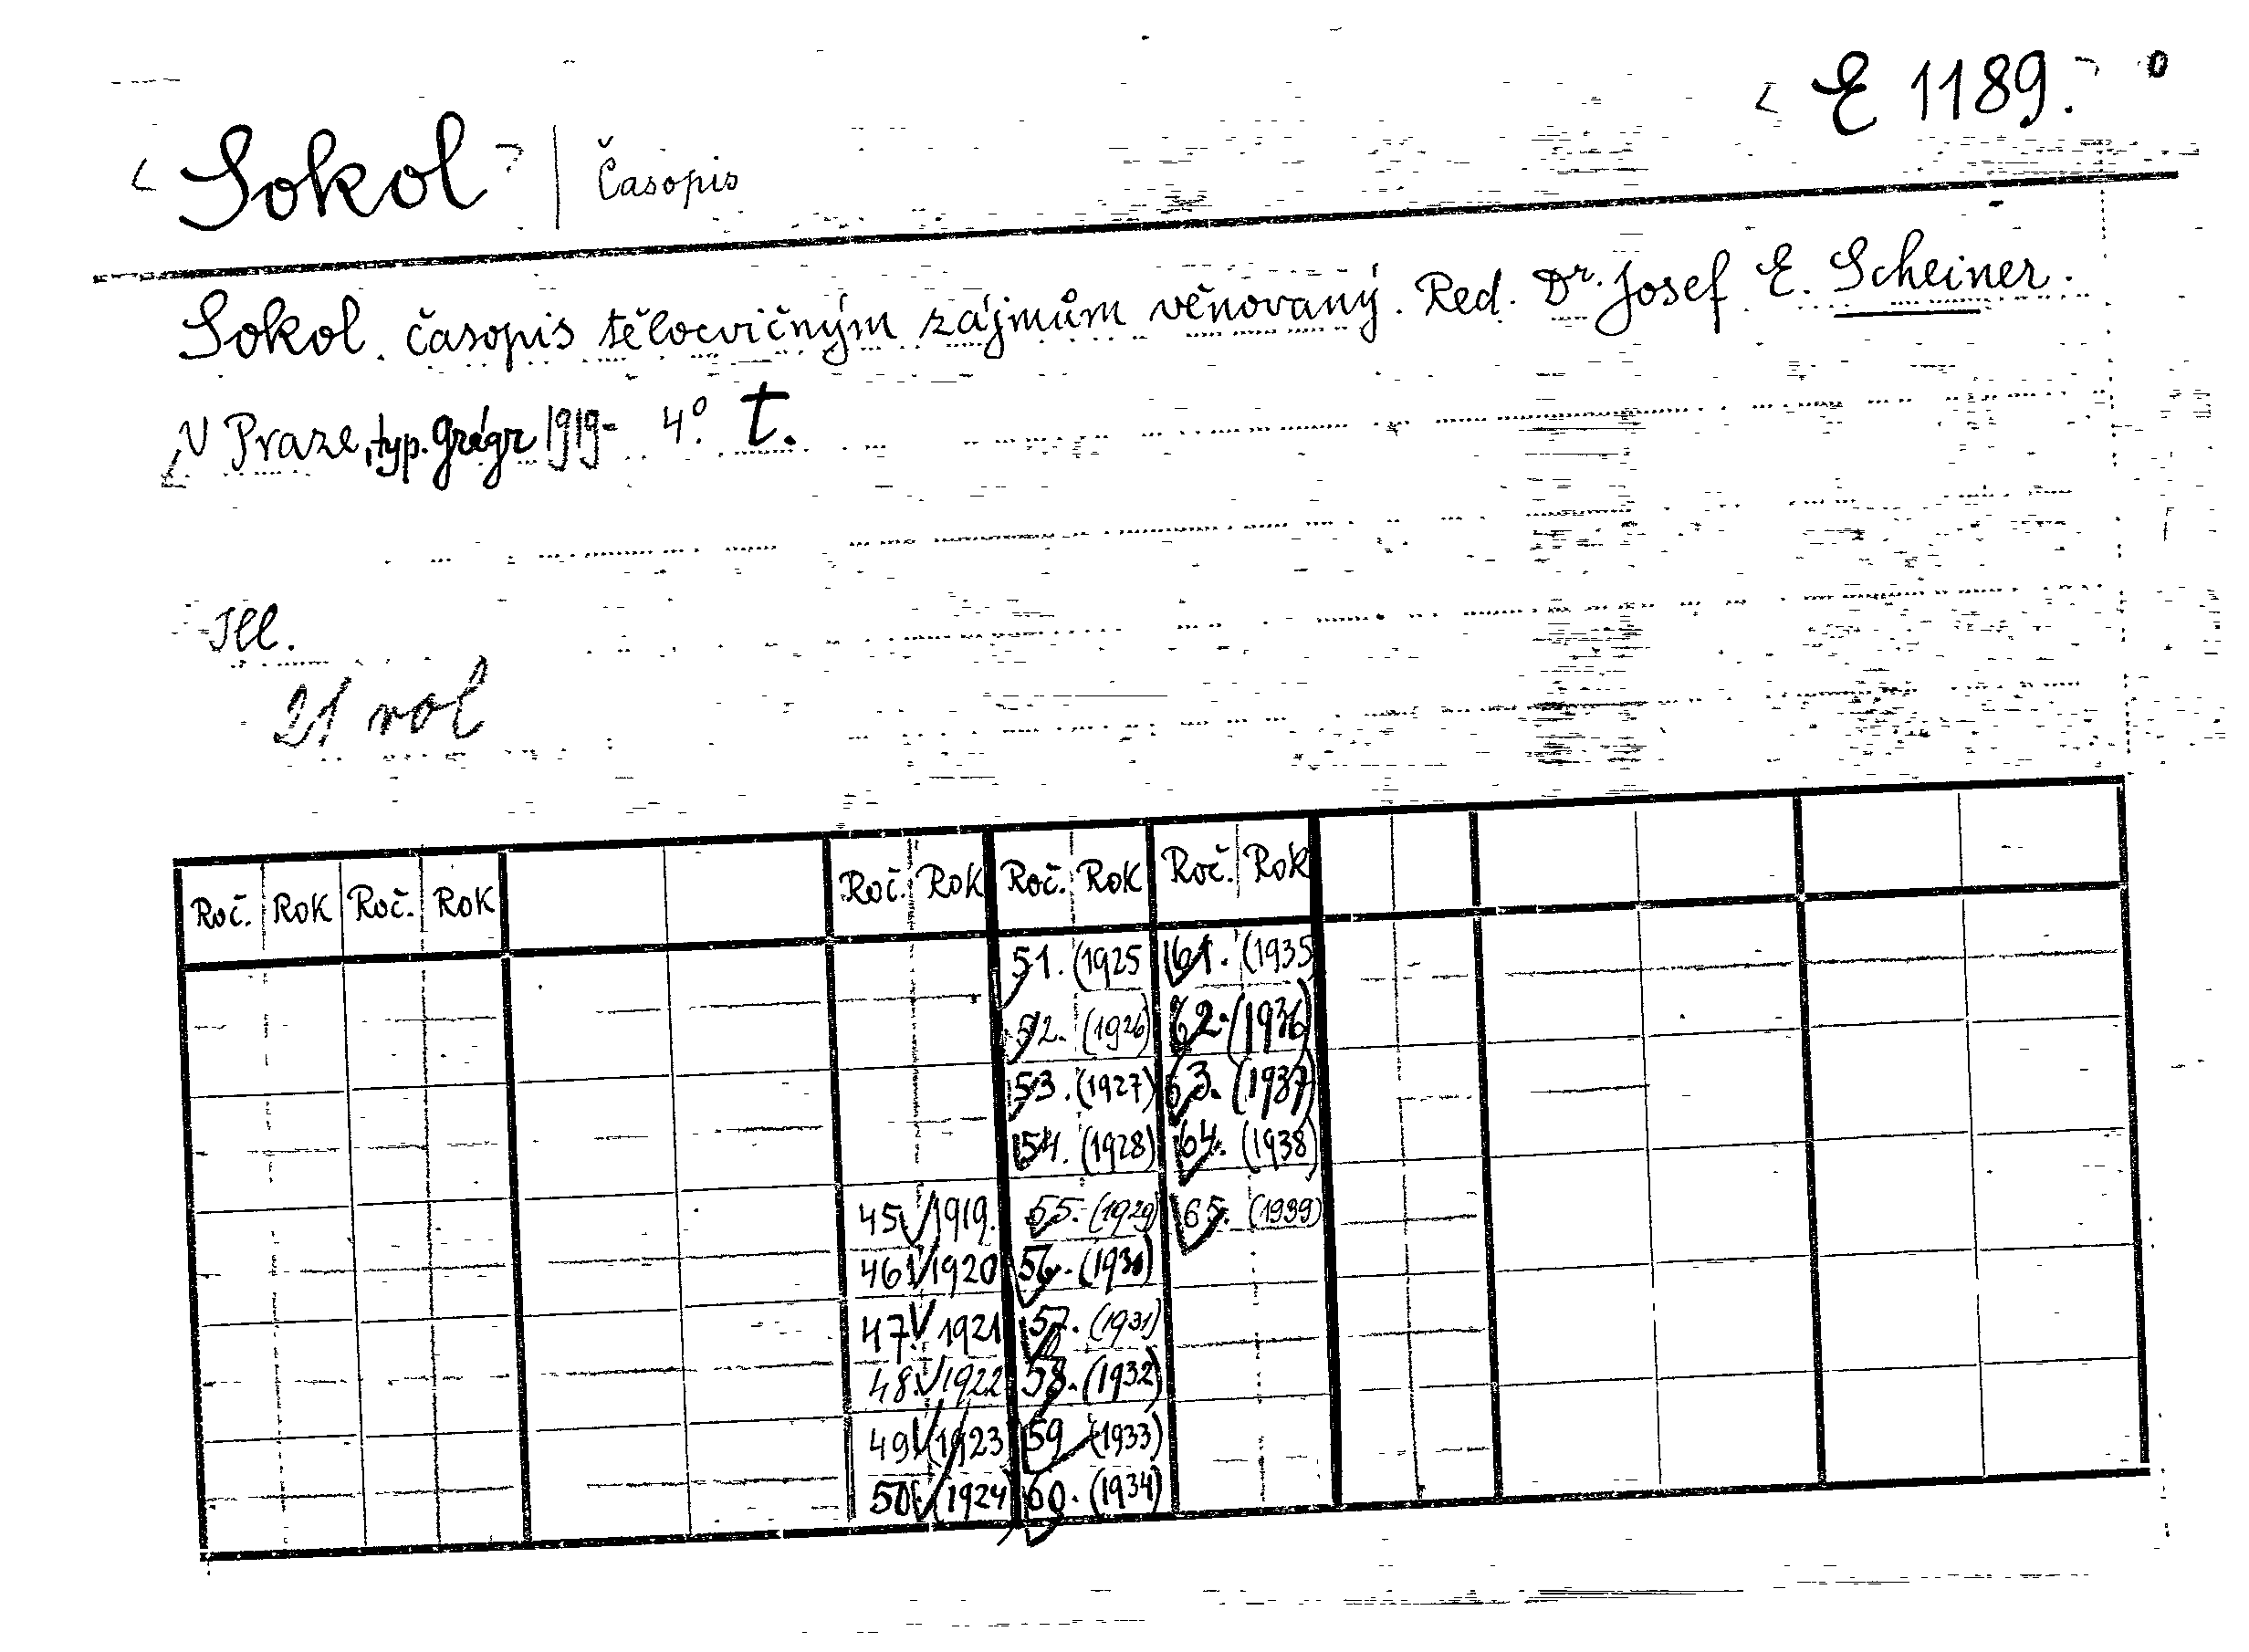 E 1189.
Sokol | Časopis
Sokol. Časopis tělocvičným zájmům věnovaný. Red. Dr. Josef E. Scheiner.
V Praze, typ. Grégr 1919- 4º. t.
Ill.
21 vol
Roč. Rok Roč. Rok Roč. Rok Roč. Rok Roč. Rok
51. (1925 61. (1935
52. (1926) 62. (1936)
53. (1927) 63. (1937)
54. (1928) 64. (1938)
45. 1919. 55. (1929) 65. (1939)
46. 1920 56. (1930)
47. 1921 57. (1931)
48. 1922 58. (1932)
49. (1923 59 (1933)
50. (1924) 60. (1934)